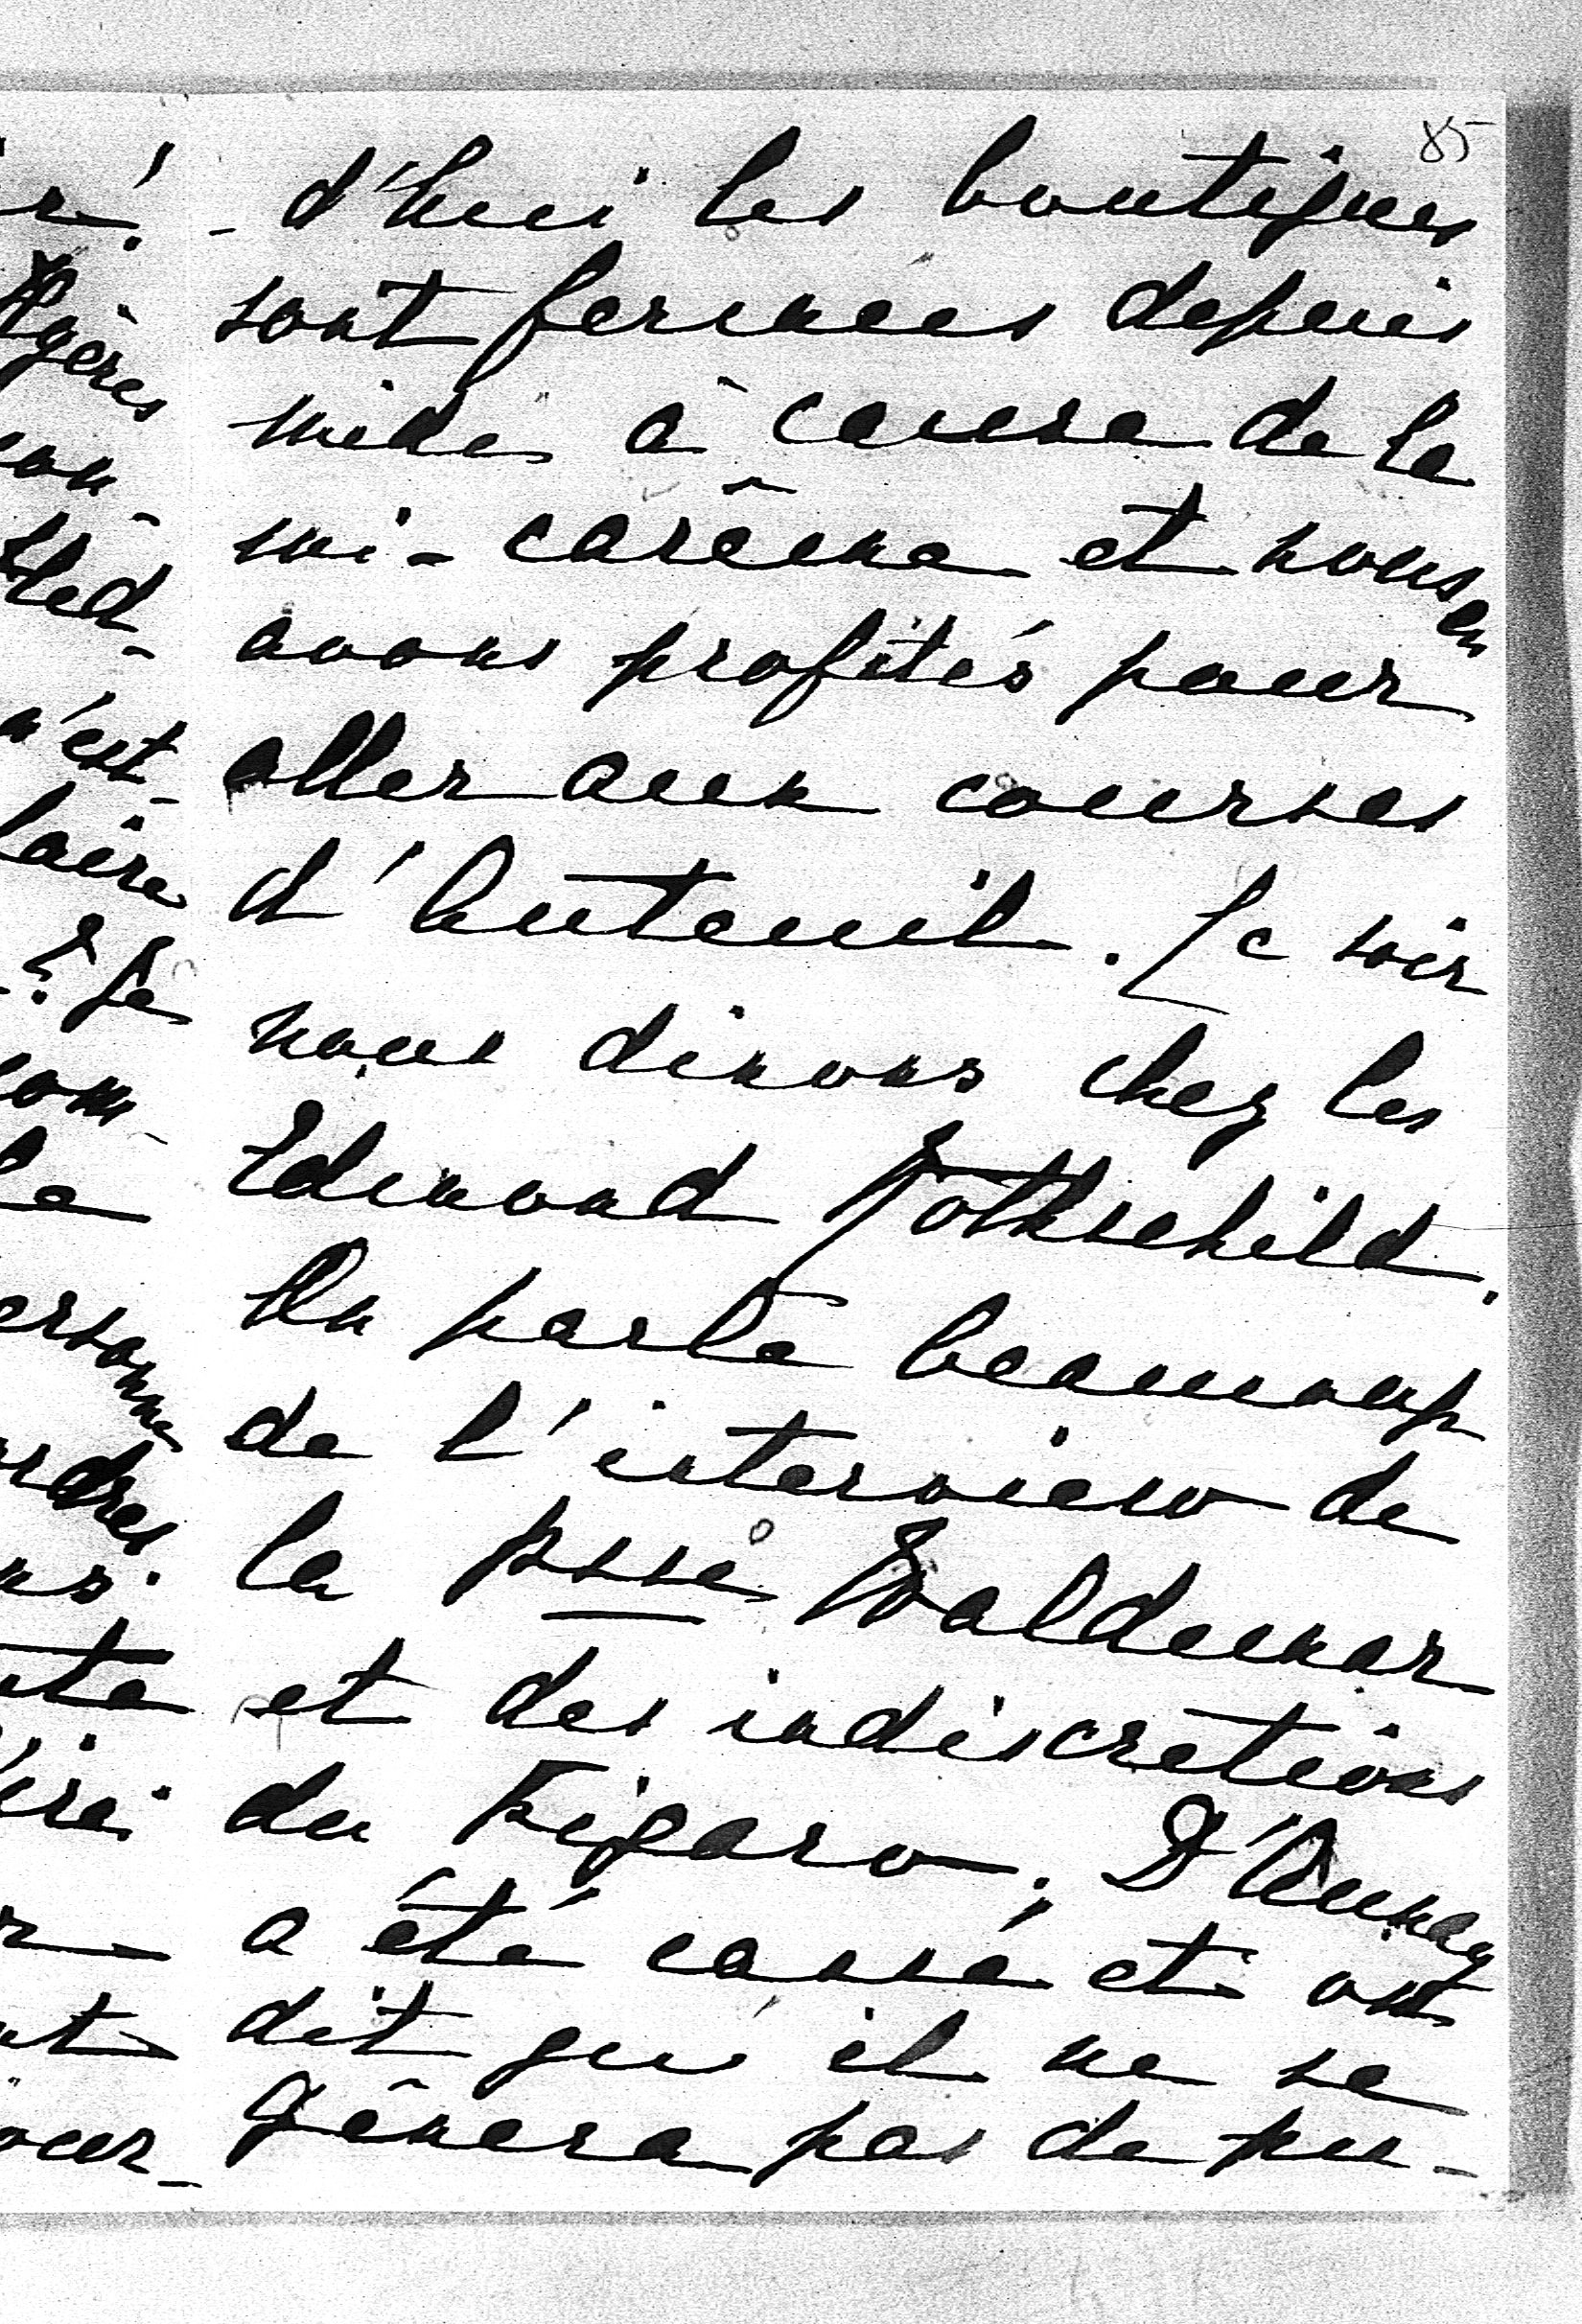 85
- d'hui les boutiques
sont fermées depuis
midi à cause de la
mi-carême et nous en
avons profités pour
aller aux courses
d'Auteuil. Ce soir
nous dinons chez les
Edmond Rothschild.
On parle beaucoup
de l'interview de
la psse Waldemar
et des indiscretions
du Figaro; D'Aunay
a été cassé et on
dit qu'il ne se
gênera pas de pu-
r!
Algères
n'est
laire
? Je
com-
la
ersonne
ordres
our-